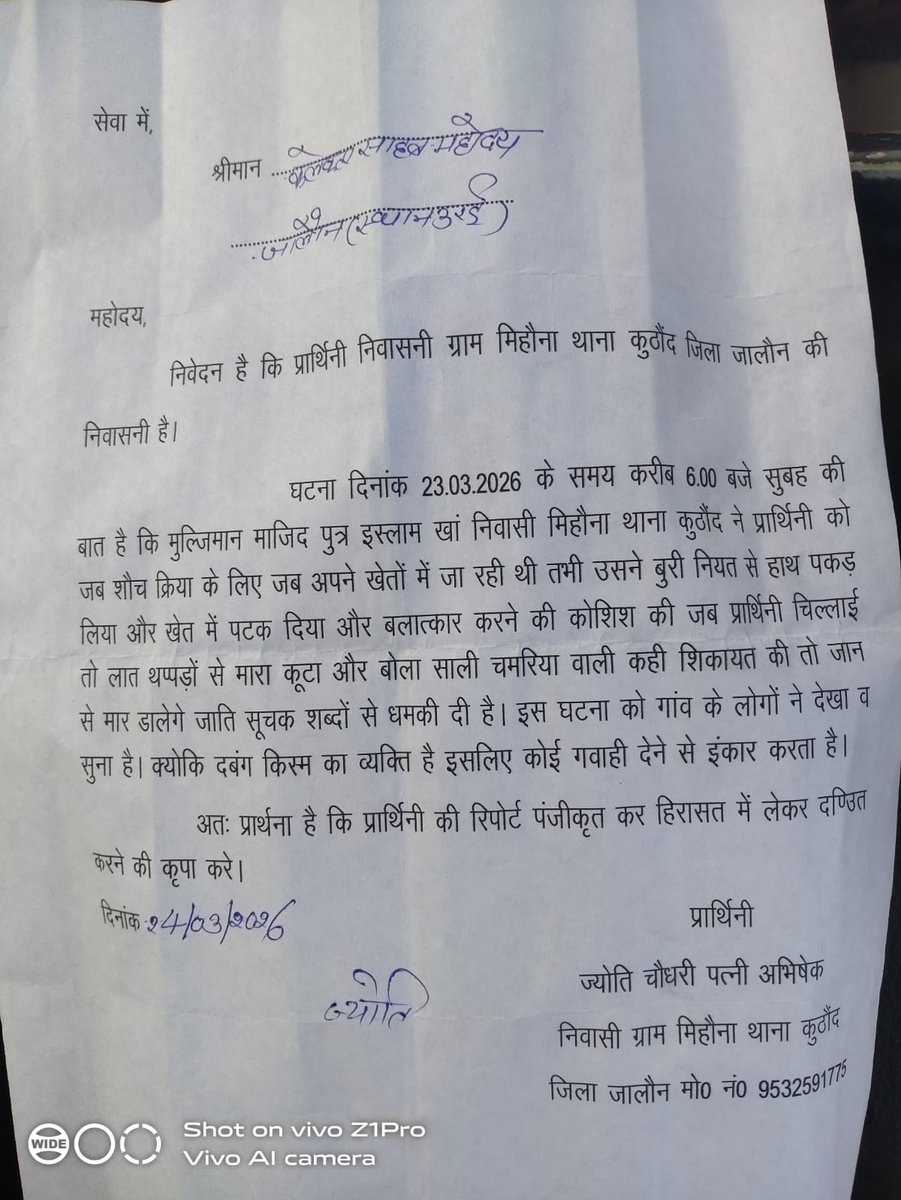 सेवा में,
श्रीमान कलेक्टर साहब महोदय
जालौन (स्थान उरई)
महोदय,
निवेदन है कि प्रार्थिनी निवासनी ग्राम मिहौना थाना कुठौंद जिला जालौन की
निवासनी है।
घटना दिनांक 23.03.2026 के समय करीब 6.00 बजे सुबह की
बात है कि मुल्जिमान माजिद पुत्र इस्लाम खां निवासी मिहौना थाना कुठौंद ने प्रार्थिनी को
जब शौच क्रिया के लिए जब अपने खेतों में जा रही थी तभी उसने बुरी नियत से हाथ पकड़
लिया और खेत में पटक दिया और बलात्कार करने की कोशिश की जब प्रार्थिनी चिल्लाई
तो लात थप्पड़ों से मारा कूटा और बोला साली चमरिया वाली कही शिकायत की तो जान
से मार डालेगे जाति सूचक शब्दों से धमकी दी है। इस घटना को गांव के लोगों ने देखा व
सुना है। क्योकि दबंग किस्म का व्यक्ति है इसलिए कोई गवाही देने से इंकार करता है।
अतः प्रार्थना है कि प्रार्थिनी की रिपोर्ट पंजीकृत कर हिरासत में लेकर दण्डित
करने की कृपा करे।
दिनांक 24/03/2026
प्रार्थिनी
ज्योति
ज्योति चौधरी पत्नी अभिषेक
निवासी ग्राम मिहौना थाना कुठौंद
जिला जालौन मो0 नं0 9532591775
WIDE
Shot on vivo Z1Pro
Vivo AI camera